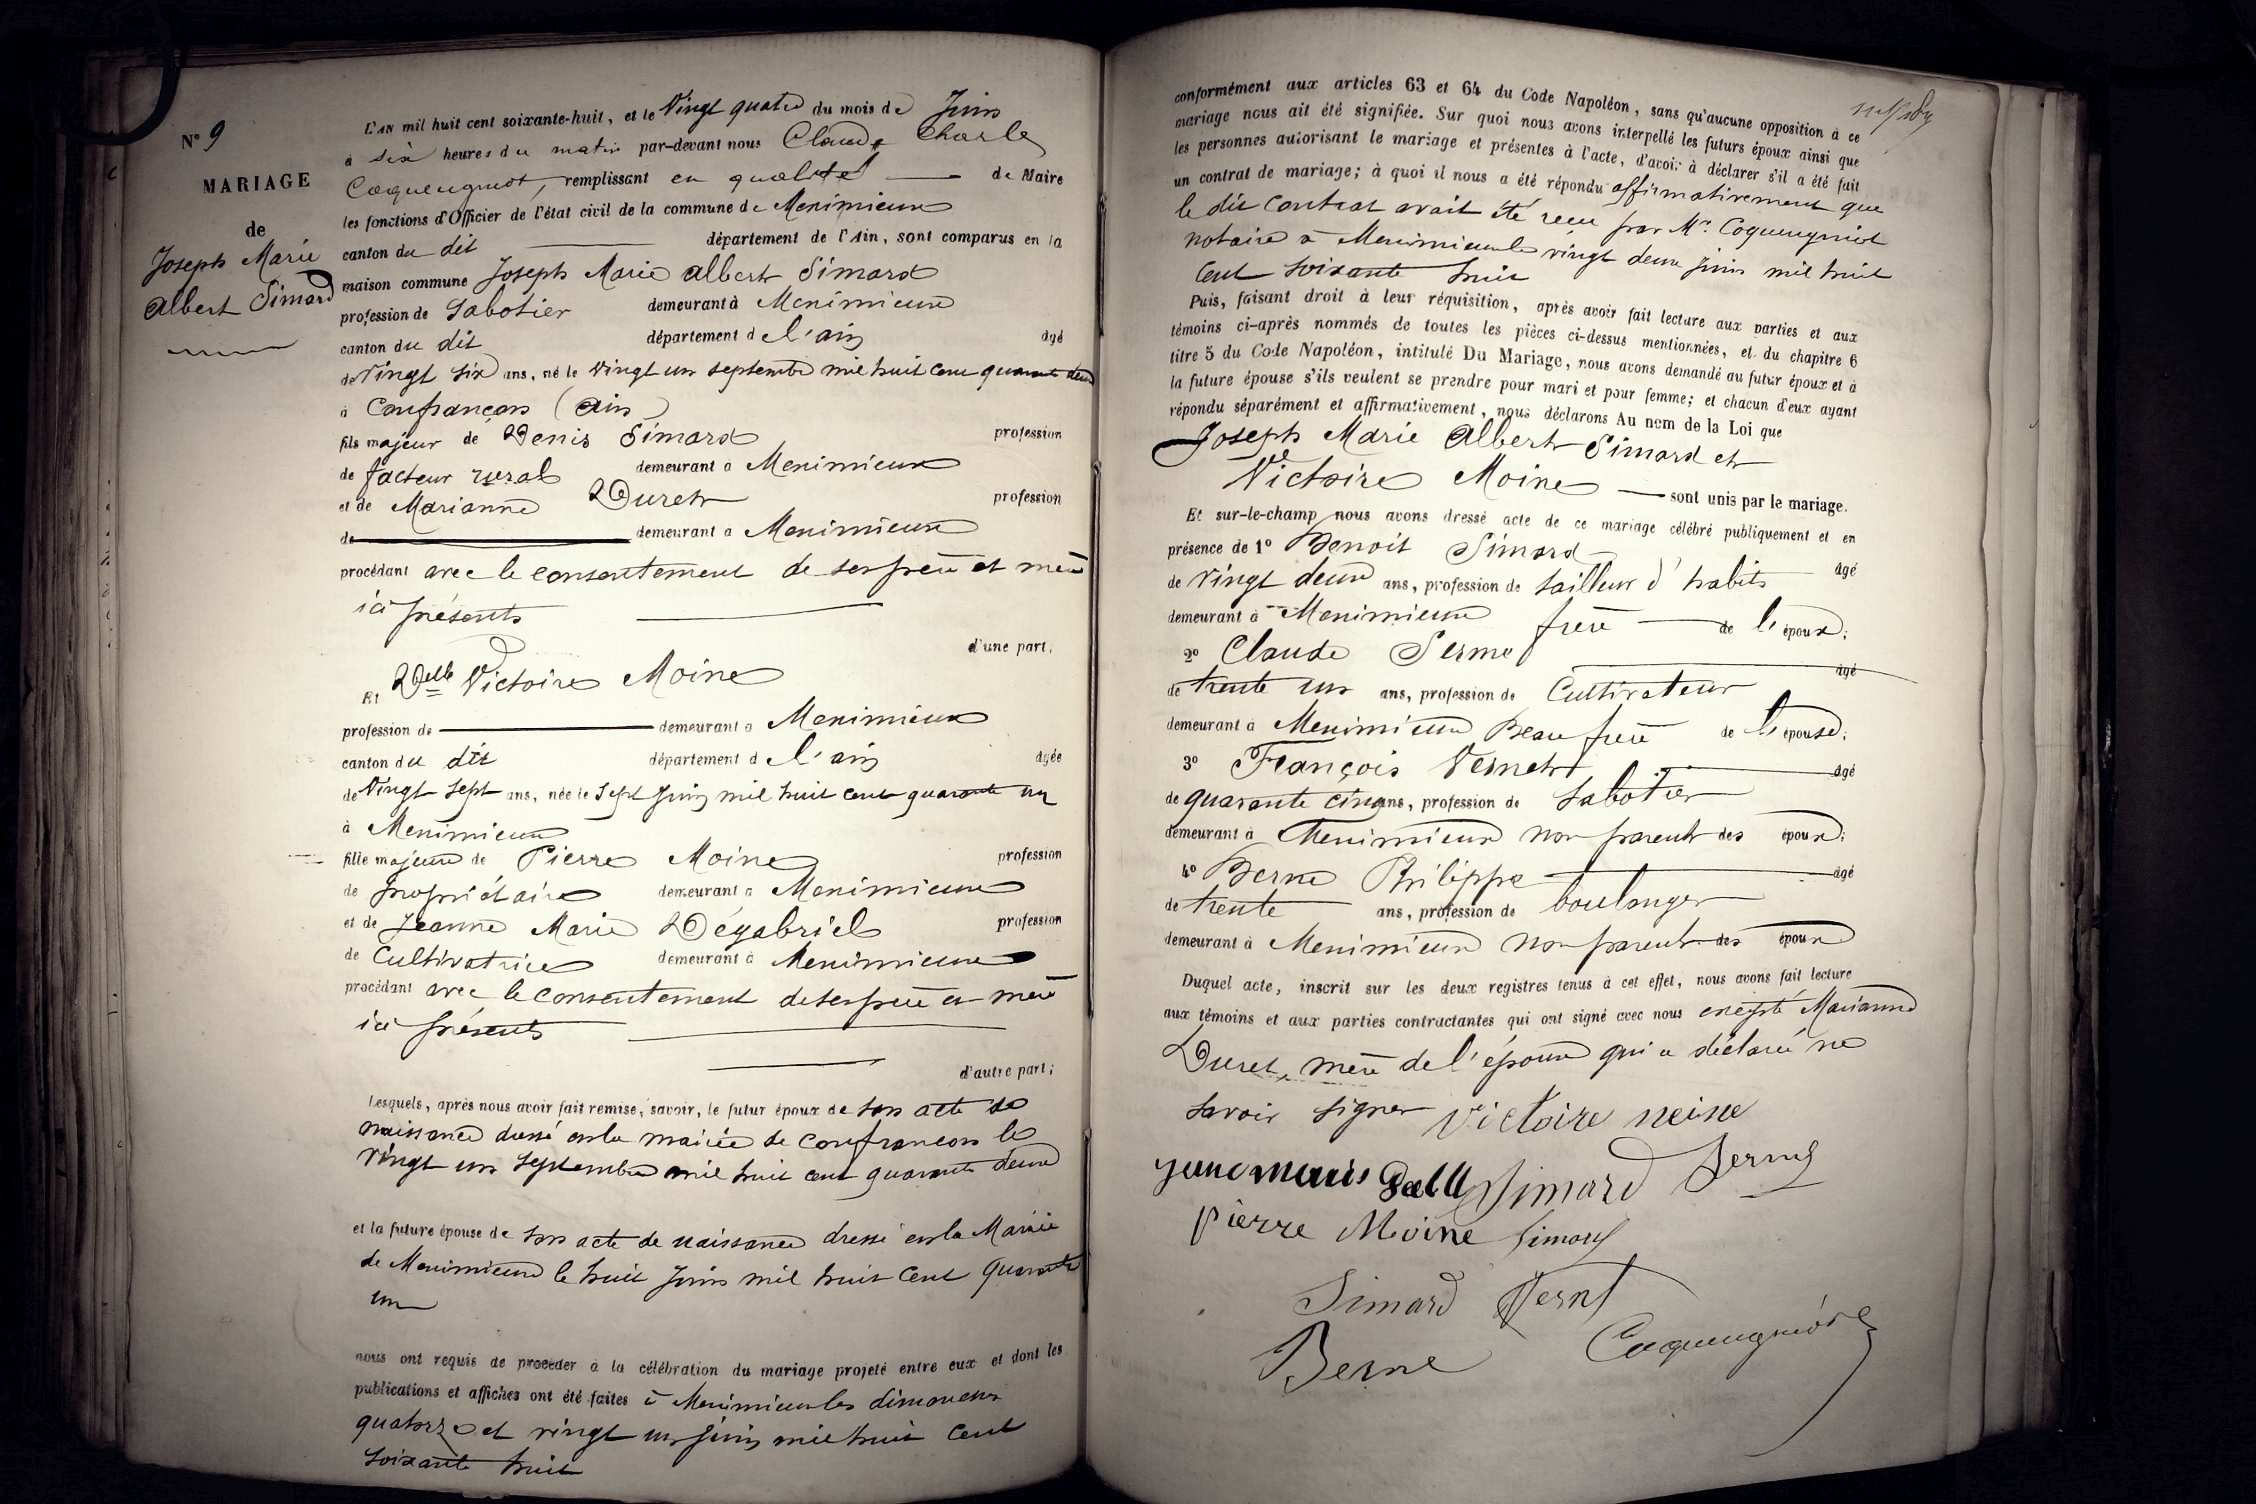 N° 9
MARIAGE
de
Joseph Marie
Albert Simard
L'AN mil huit cent soixante-huit, et le Vingt quatre du mois de Juin
à six heures du matin par-devant nous Claude Charle
Coqueugniot, remplissant en qualité de Maire
les fonctions d'Officier de l'état civil de la commune de Meximieux
canton du dit département de l'Ain, sont comparus en la
maison commune Joseph Marie Albert Simard
profession de Sabotier demeurant à Meximieux
canton du dit département de l'ain âgé
de Vingt six ans, né le Vingt un septembre mil huit cent quarante deux
à Confrançon (Ain)
fils majeur de Denis Simard profession
de facteur rural demeurant à Meximieux
et de Marianne Duret profession
de demeurant à Meximieux
procédant avec le consentement de ses père et mère
ici présents
d'une part;
Et Delle Victoire Moine
profession de demeurant à Meximieux
canton du dit département de l'ain âgée
de Vingt sept ans, née le Sept Juin mil huit cent quarante un
à Meximieux
fille majeure de Pierre Moine profession
de propriétaire demeurant à Meximieux
et de Jeanne Marie Dégabriel profession
de Cultivatrice demeurant à Meximieux
procédant avec le consentement de ses père et mère
ici présents
d'autre part;
Lesquels, après nous avoir fait remise, savoir, le futur époux de son acte de
naissance dressé en la mairie de Confrançon le
Vingt un Septembre mil huit cent quarante deux
et la future épouse de son acte de naissance dressé en la Mairie
de Meximieux le huit Juin mil huit cent quarante
un
nous ont requis de procéder à la célébration du mariage projeté entre eux et dont les
publications et affiches ont été faites à Meximieux les dimanches
quatorze et vingt un Juin mil huit cent
soixante huit
conformément aux articles 63 et 64 du Code Napoléon, sans qu'aucune opposition à ce
mariage nous ait été signifiée. Sur quoi nous avons interpellé les futurs époux ainsi que
les personnes autorisant le mariage et présentes à l'acte, d'avoir à déclarer s'il a été fait
un contrat de mariage; à quoi il nous a été répondu affirmativement que
le dit Contrat avait été reçu par Me Coqueugniot
notaire à Meximieux le vingt deux Juin mil huit
Cent soixante huit
Puis, faisant droit à leur réquisition, après avoir fait lecture aux parties et aux
témoins ci-après nommés de toutes les pièces ci-dessus mentionnées, et du chapitre 6
titre 5 du Code Napoléon, intitulé Du Mariage, nous avons demandé au futur époux et à
la future épouse s'ils veulent se prendre pour mari et pour femme; et chacun d'eux ayant
répondu séparément et affirmativement, nous déclarons Au nom de la Loi que
Joseph Marie Albert Simard et
Victoire Moine sont unis par le mariage.
Et sur-le-champ nous avons dressé acte de ce mariage célébré publiquement et en
présence de 1° Benoit Simard âgé
de Vingt deux ans, profession de tailleur d'habits
demeurant à Meximieux frère de l'époux;
2° Claude âgé
de trente un ans, profession de Cultivateur
demeurant à Meximieux Beau frère de l'épouse;
3° François Vernet âgé
de quarante cinq ans, profession de Sabotier
demeurant à Meximieux non parent des époux;
4° Berne Philippe âgé
de trente ans, profession de boulanger
demeurant à Meximieux non parent des époux
Duquel acte, inscrit sur les deux registres tenus à cet effet, nous avons fait lecture
aux témoins et aux parties contractantes qui ont signé avec nous excepté Marianne
Duret, mère de l'époux qui a déclaré ne
savoir signer Victoire
Simard
Pierre Moine Simard
Simard
Berne Coqueugniot